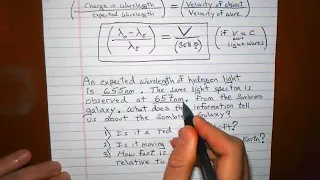 (Change in Wavelength / Expected Wavelength) = (Velocity of object / Velocity of Wave)
(λ - λ / λ) = V / (3E8 m/s) (if V = C light waves)
An expected wavelength of hydrogen light
is 655nm. The same light spectra is
observed at 657nm, from the Sombrero
galaxy. What does this information tell
us about the Sombrero Galaxy?
1) Is it a red ft?
2) Is it moving Earth?
3) How fast is
relative to